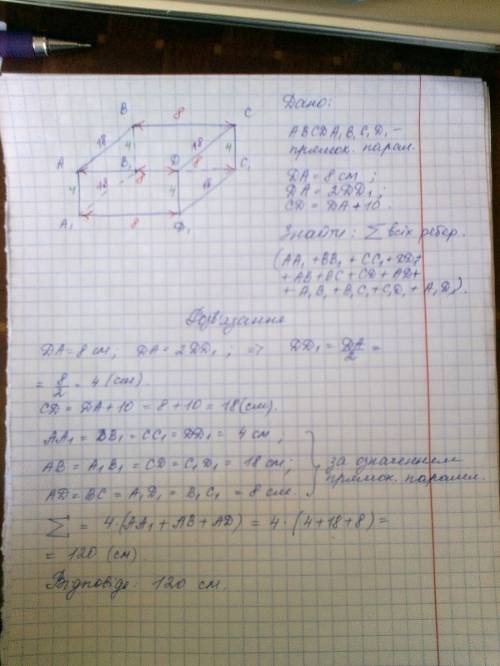 B 8 C
18 4 18 4
A B₁ D 8 C₁
4 18 8 4 18
A₁ 8 D₁
Дано:
ABCDA₁B₁C₁D₁ –
прямок. парал.
DA = 8 см ;
DA = 2DD₁ ;
CD = DA + 10.
Знайти: ∑ всіх ребер.
(AA₁ + BB₁ + CC₁ + DD₁ +
+ AB + BC + CD + AD +
+ A₁B₁ + B₁C₁ + C₁D₁ + A₁D₁).
Розв'язання
DA = 8 см; DA = 2DD₁ ; => DD₁ = DA/2 =
= 8/2 = 4 (см).
CD = DA + 10 = 8 + 10 = 18 (см).
AA₁ = BB₁ = CC₁ = DD₁ = 4 см ;
AB = A₁B₁ = CD = C₁D₁ = 18 см;
AD = BC = A₁D₁ = B₁C₁ = 8 см.
за означенням
прямок. парал.
∑ = 4·(AA₁ + AB + AD) = 4·(4 + 18 + 8) =
= 120 (см)
Відповідь: 120 см.